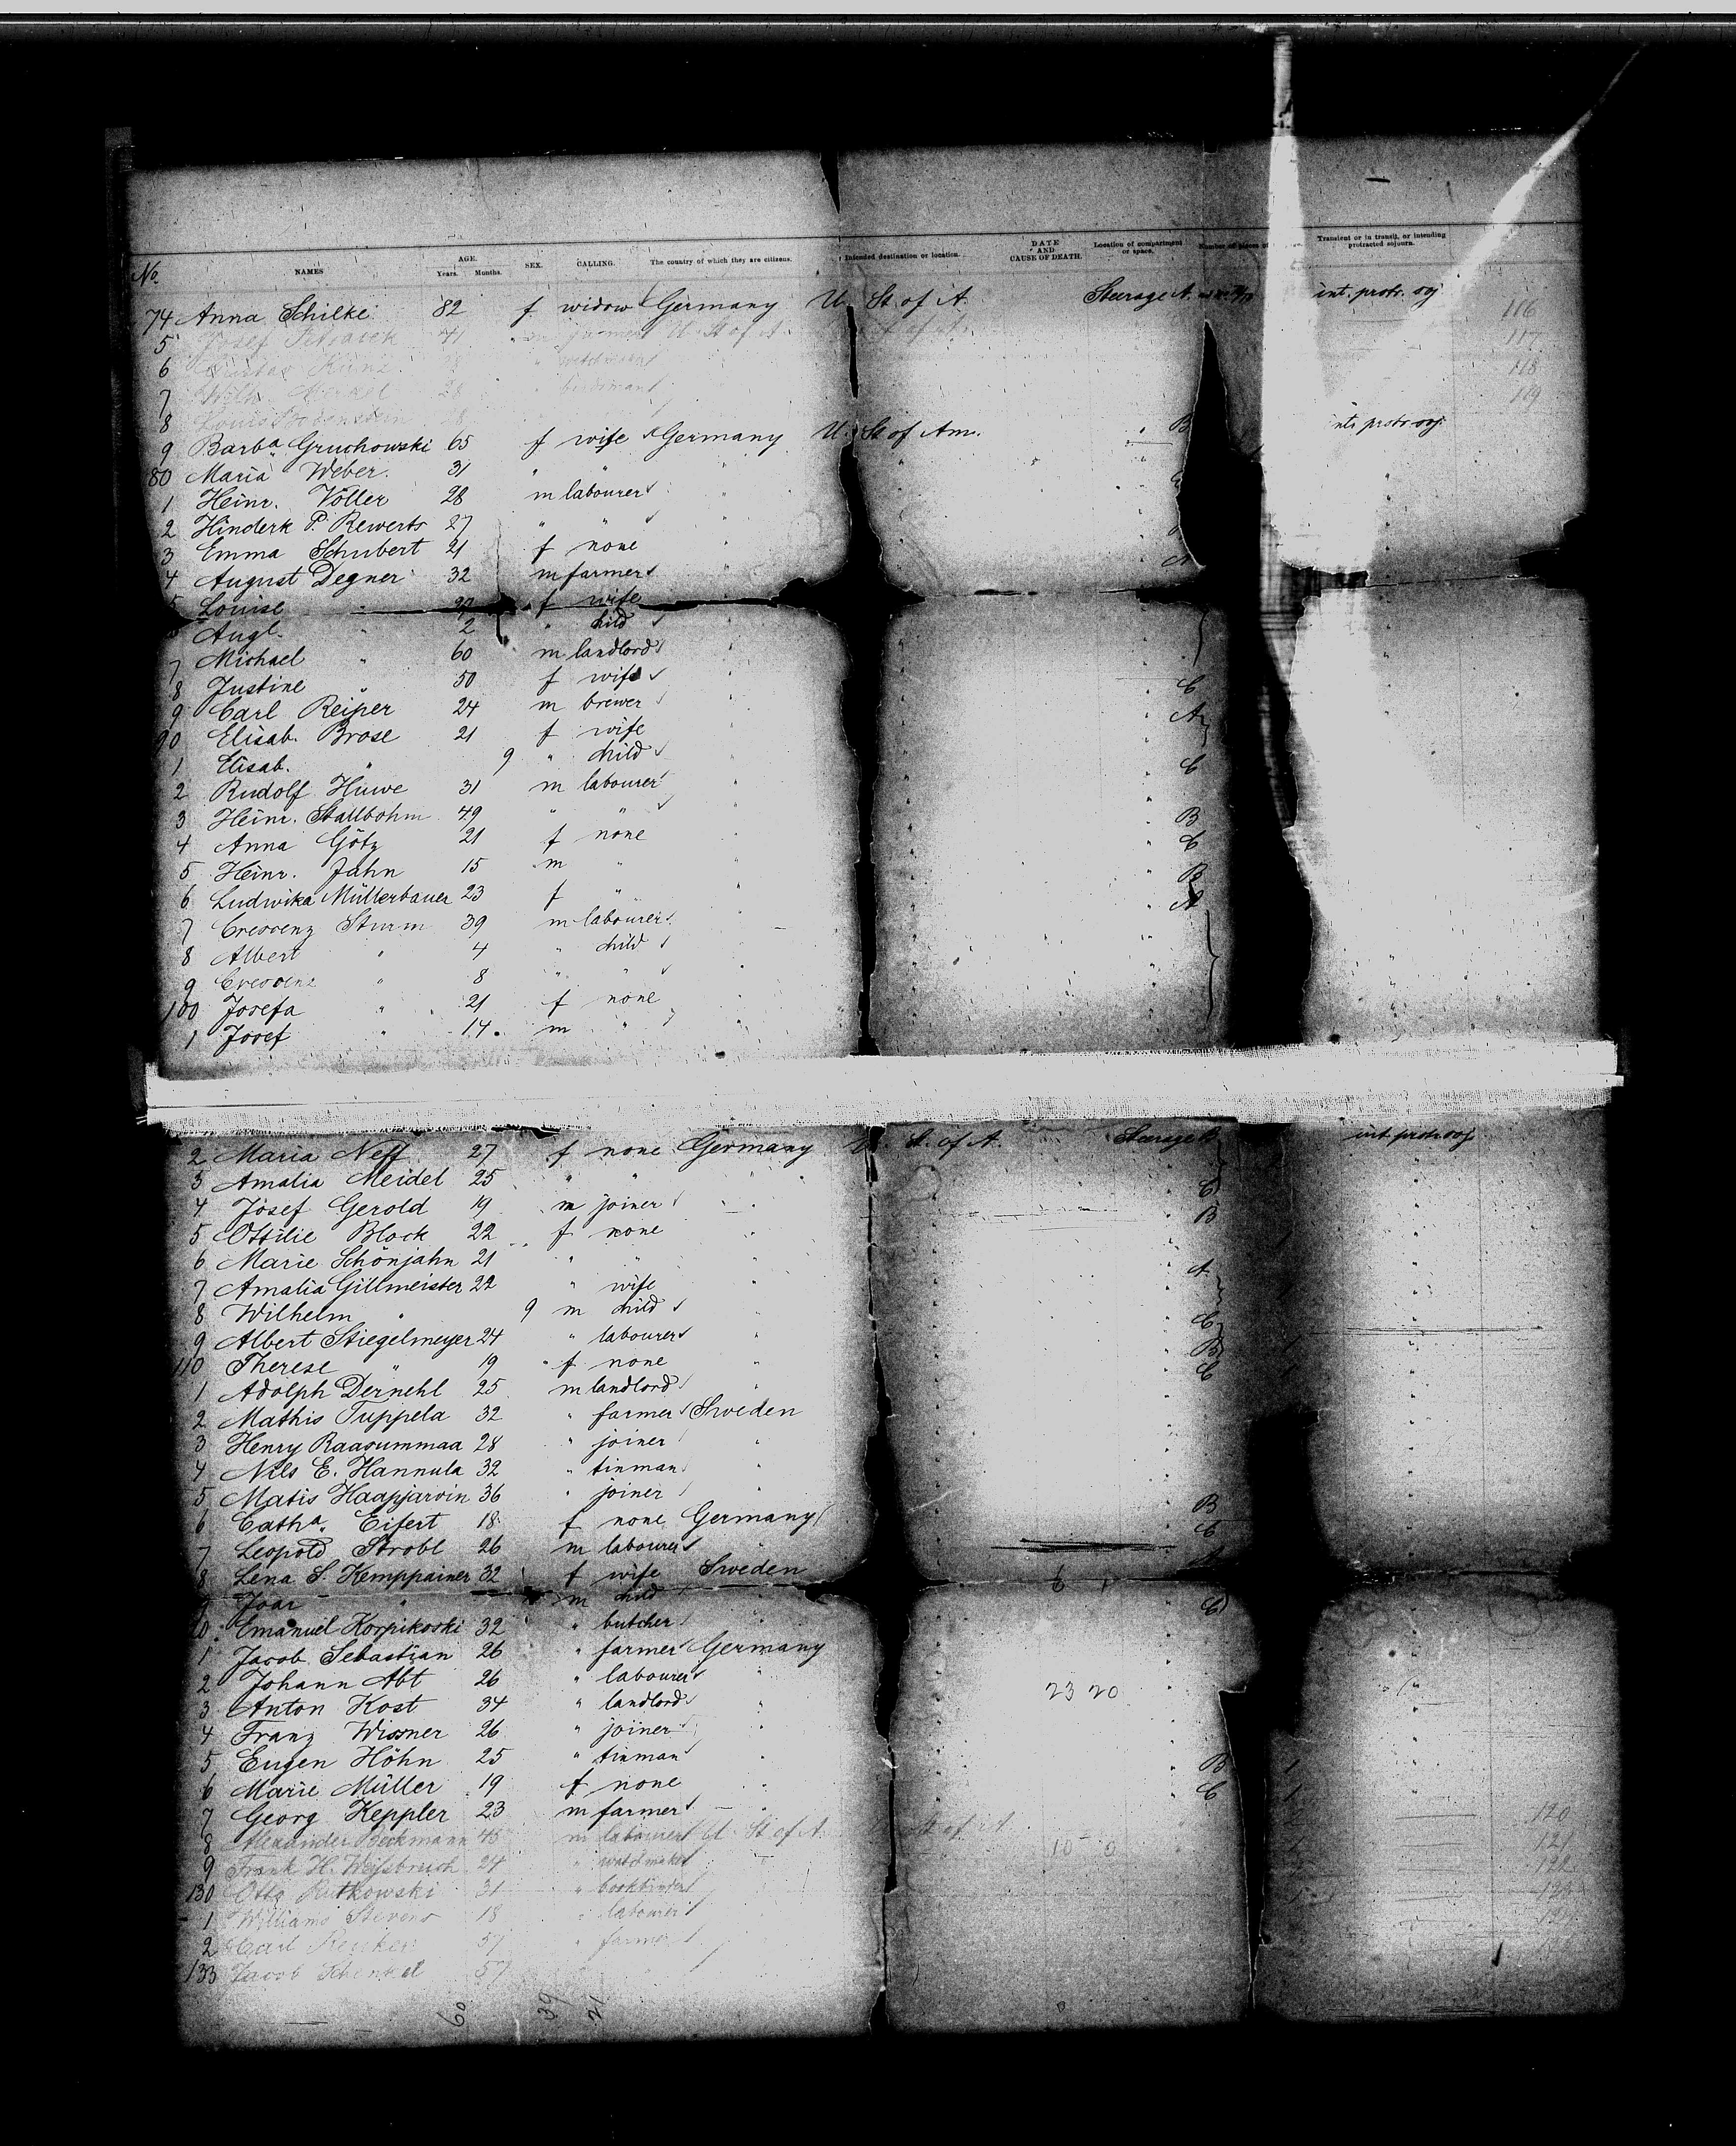 No. NAMES AGE. Years. Months. SEX. CALLING. The country of which they are citizens. Intended destination or location. DATE AND CAUSE OF DEATH. Location of compartment or space. Number of pieces of Transient or in transit, or intending protracted sojourn.
74 Anna Schilke 82 f widow Germany U. St of A. Steerage A. int. protr. soj 116
5 Josef 41 farmer U. St of A. 117
6 Kunz watchmaker 118
7 Wilh. 28 119
8 Louis
9 Barba. Gruchowski 65 f wife Germany U. St of Am. B int. protr soj.
80 Maria Weber. 31 " " "
1 Heinr. Voller 28 m labourer "
2 Hinderk P. Rewerts 27 " " "
3 Emma Schubert 21 f none "
4 August Degner 32 m farmer " A
5 Louise " f wife
Augl. " 2 " child "
7 Michael " 60 m landlord "
8 Justine " 50 f wife " C
9 Carl Reiper 24 m brewer " A
90 Elisab. Brose 21 f wife
1 Elisab. " 9 " child " C
2 Rudolf Huwe 31 m labourer "
3 Heinr. Stallbohm 49 " " " B
4 Anna Götz 21 f none C
5 Heinr. Jahn 15 m " " B
6 Ludwika Müllerbauer 23 f " " A
7 Crescenz Sturm 39 m labourer "
8 Albert " 4 " child "
9 Crescenz " 8 " " "
100 Josefa " 21 f none "
1 Josef " 14 m " "
2 Maria Neff 27 f none Germany U. St. of A. Steerage int. protr. soj
3 Amalia Meidel 25 " " " C
4 Josef Gerold 19 m joiner " B
5 Ottilie Block 22 f none "
6 Marie Schönjahn 21 " " " A
7 Amalia Gillmeister 22 " wife "
8 Wilhelm " 9 m child " C
9 Albert Stiegelmeyer 24 " labourer " B
110 Therese " 19 f none " C
1 Adolph Dernehl 25 m landlord "
2 Mathis Tuppela 32 " farmer Sweden
3 Henry Raasummaa 28 " joiner "
4 Nils E. Hannula 32 " tinman "
5 Matis Haapjarvin 36 " joiner " B
6 Catha. Eifert 18 f none Germany C
7 Leopold Strobl 26 m labourer " A
8 Lena S. Kemppainer 32 f wife Sweden
Joar " m child " C
Emanuel Korpikoski 32 " butcher "
1 Jacob Sebastian 26 " farmer Germany
2 Johann Abt 26 " labourer "
3 Anton Kost 34 " landlord " 23 20
4 Franz Wissner 26 " joiner "
5 Eugen Höhn 25 " tinman " B 1
6 Marie Müller 19 f none " C 1
7 Georg Keppler 23 m farmer " 120
8 Alexander Beckmann 45 m labourer U. St of A. St of A. 10 0 121
9 Frank H. Weissbruch 24 " watchmaker " 122
130 Otto Rutkowski 31 " bookbinder
1 Williams Stevens 18 " labourer
2 Carl 57 " farmer
133 Jacob Schenkel 57
60 39 21